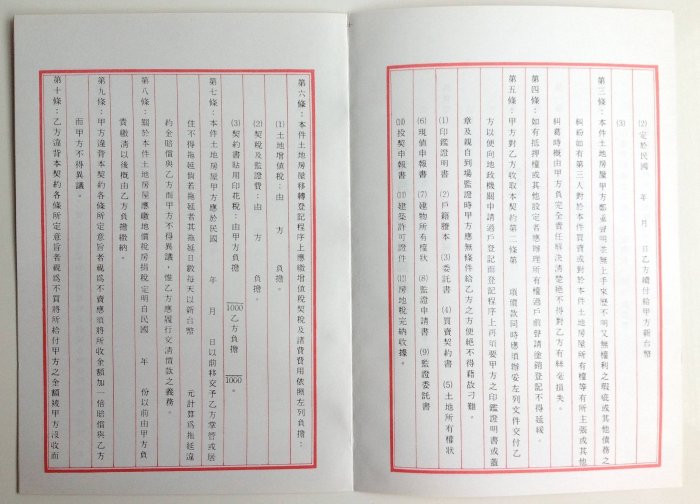 (2) 定於民國　年　月　日乙方續付給甲方新台幣
(3)
第三條：本件土地房屋甲方鄭重聲明並無上手來歷不明又無權利之瑕疵或其他債務之
糾紛如有第三人對於本件買賣或對於本件土地房屋所有權等有所主張或其他
糾葛時概由甲方負完全責任解決清楚絕不得對乙方有絲毫損失。
第四條：如有抵押權或其他設定者應辦理所有權過戶前聲請塗銷登記不得延緩。
第五條：甲方對乙方收取本契約第二條第　項價款同時應須辦妥左列文件交付乙
方以便向地政機關申請過戶登記而登記程序上再須要甲方之印鑑證明書或蓋
章及親自到場監證時甲方應無條件給乙方之方便絕不得藉故刁難。
(1)印鑑證明書　(2)戶籍謄本　(3)委託書　(4)買賣契約書　(5)土地所有權狀
(6)現值申報書　(7)建物所有權狀　(8)監證申請書　(9)監證委託書
(10)投契申報書　(11)建築許可證件　(12)房地稅完納收據。
第六條：本件土地房屋移轉登記程序上應繳增值稅契稅及諸費費用依照左列負擔：
(1)土地增值稅：由　方　負擔。
(2)契稅及監證費：由　方　負擔。
(3)契約書貼用印花稅：由甲方負擔　1000乙方負擔　1000。
第七條：本件土地房屋甲方應於民國　年　月　日以前移交予乙方掌管或居
住不得拖延倘若拖延者其拖延日數每天以新台幣　元計算爲拖延違
約金賠償與乙方而甲方不得異議。惟乙方應履行交清價款之義務。
第八條：關於本件土地房屋應繳地價稅房捐稅定明自民國　年　份以前由甲方負
責繳清以後概由乙方負擔繳納。
第九條：甲方違背本契約各條所定意旨者視爲不賣應須將所收金額加一倍賠償與乙方
而甲方不得異議。
第十條：乙方違背本契約各條所定意旨者視爲不買將所給付甲方之金額被甲方沒收而